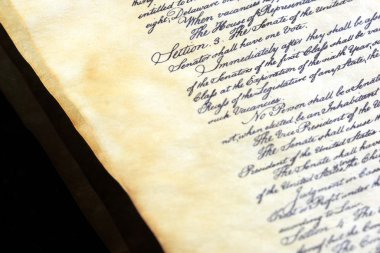 entitled to
ight, Delaware one
When vacancies
The House of Representat
Section 3 The Senate of the United
Senator shall have one Vote.
Immediately after they shall be
of the Senators of the first Class shall be vac
Class at the Expiration of the sixth Year, so
Recess of the Legislature of any State, the
such Vacancies.
No Person shall be a Senat
not, when elected, be an Inhabitant
The Vice President of the U
The Senate shall chuse
President of the United States
The Senate shall have
of the United States
Judgment in Cas
Trust or Profit under th
according to Law.
Section 4 The